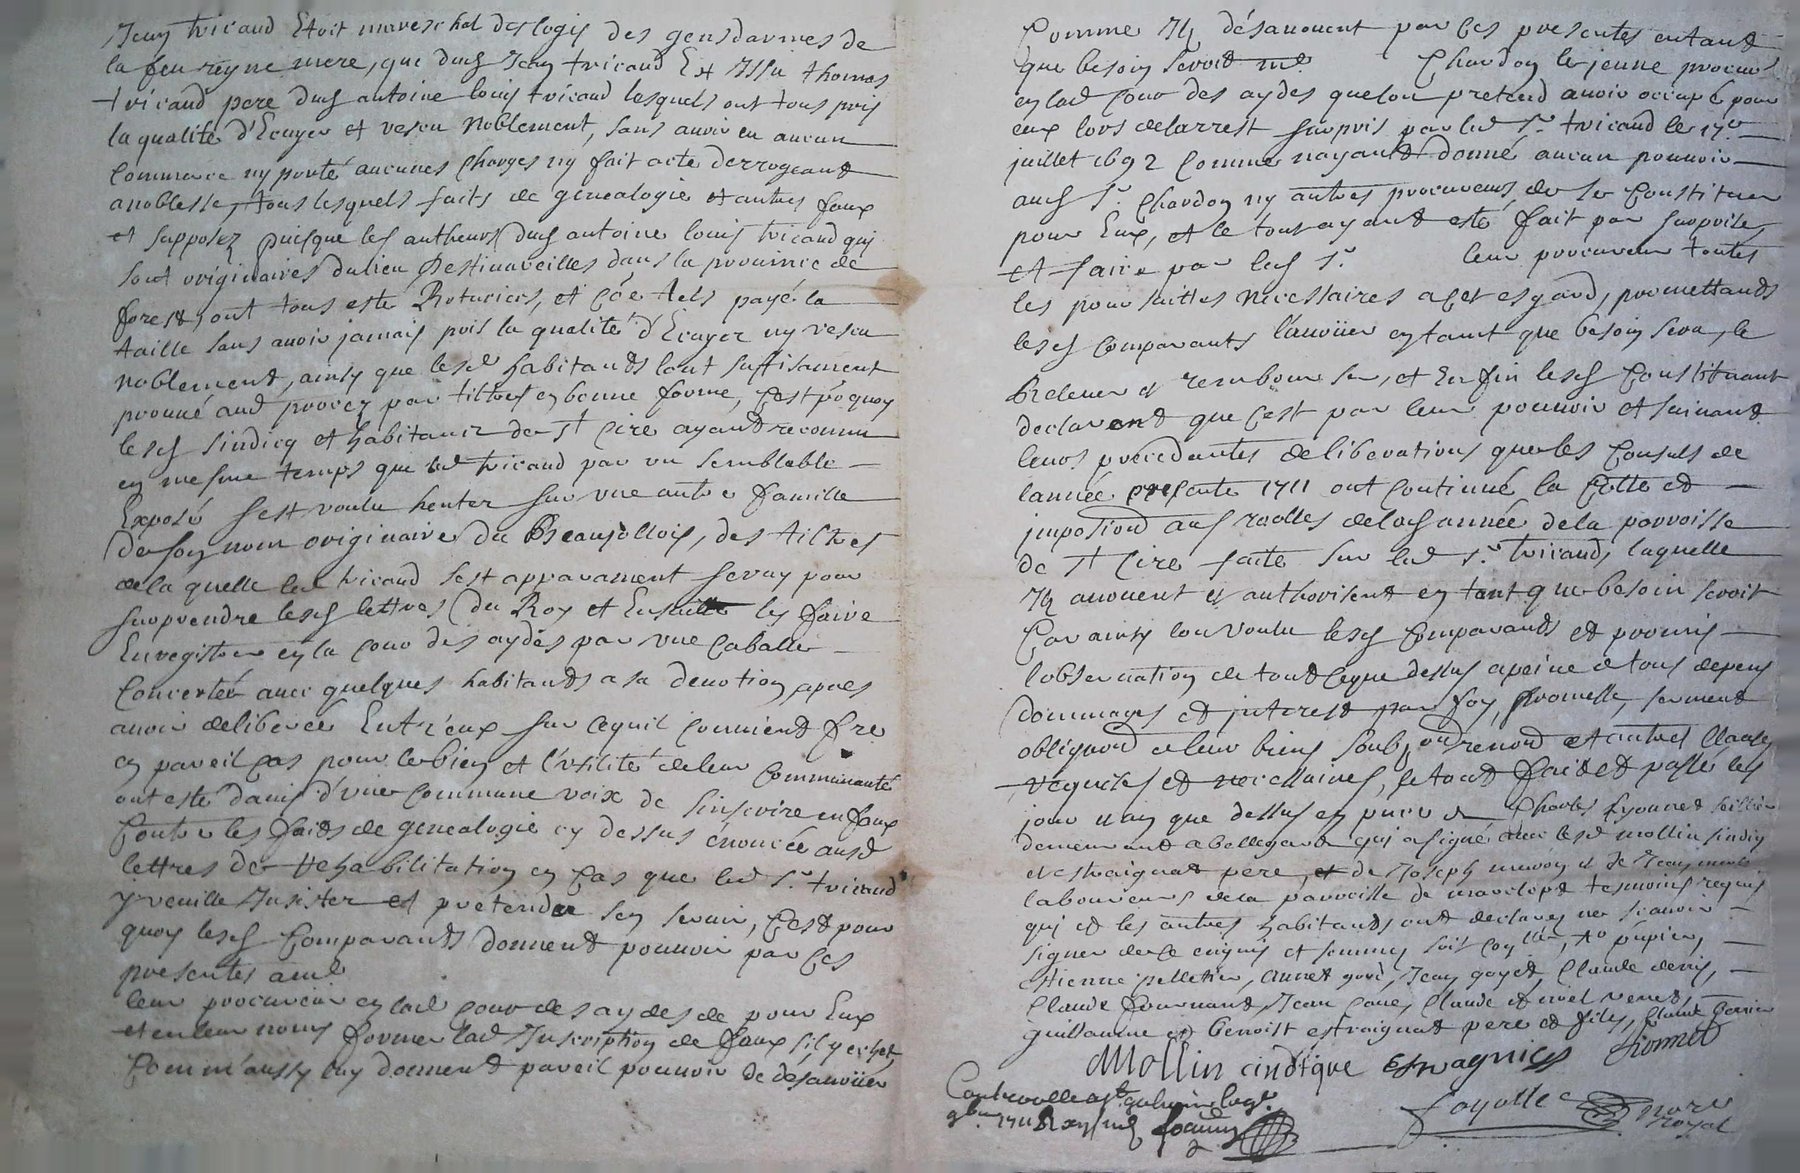 Jean tricaud Etoit mareschal des logis des gensdarmes de
la feu reyne mere, que dud Jean tricaud Est Issu thomas
tricaud pere dud antoine louis tricaud lesquels ont tous pris
la qualité d'Ecuyer et vescu Noblement, sans avoir eu aucun
Commerce ny porté aucunes charges ny fait acte derrogeant
a noblesse, tous lesquels faits de genealogie et autres faux
et supposez puisque les autheurs dud antoine louis tricaud qui
sont originaires du lieu destivareilles dans la province de
forest, ont tous esté Roturiers, et cõe tels payé la
taille sans avoir jamais pris la qualité d'Ecuyer ny vescu
noblement, ainsy que lesd habitants sont suffisament
prouvé aud procez par tiltres en bonne forme, c'est pòquoy
lesd sindicq et habitants de St Cire ayant reconnu
en mesme temps que led tricaud par un semblable
Exposé s'est voulu henter sur une autre famille
de son nom originaire du Beaujollois, des tiltres
de la quelle led tricaud s'est apparament servy pour
surprendre lesd lettres du Roy et Ensuitte les faire
Enregistrer en la cour des aydes par une caballe
Concertée avec quelques habitants a sa devotion, apres
avoir deliberé Entr'eux sur ce quil convient fre
en pareil cas pour le bien et l'utilité de leur Communauté
ont esté d'avis d'une commune voix de s'inscrire en faux
Contre les faits de genealogie cy dessus énoncée ausd
lettres de rehabilitation en cas que led sr. tricaud
y veuille Insister et pretendre s'en servir, c'est pour
quoy lesd Comparants donnent pouvoir par ces
presentes a me
leur procureur en lad cour des aydes de pour Eux
et en leur noms former lad Inscription de faux s'il y echet,
Comm'aussy luy donnent pareil pouvoir de desavoüer
Comme Ils désavouent par ces presentes entant
que besoin seroit me. Chardon le jeune procur
en lad cour des aydes que lon pretend avoir occupé pour
eux lors de larrest surpris par led sr. tricaud le 17e
juillet 1692 comme n'ayant donné aucun pouvoir
aud sr. Chardon ny autres procureurs de se constituer
pour Eux, et le tout ayant esté fait par surprise,
et faire par led sr. leur procureur toutes
les poursuittes necessaires a cet esgard, promettants
lesd comparants l'avoüer en tant que besoin sera, le
Relever et rembourser, et Enfin lesd Constituant
declarent que c'est par leur pouvoir et suivant
leurs precedantes deliberations que les Consuls de
lannée presente 1711 ont continué la Cotte et
imposiond aux roolles de lad année de la parroisse
de St Cire faite sur led sr. tricaud, laquelle
Ils avouent et authorisent en tant que besoin seroit
Car ainsy lon voulu lesd Comparants et promis
lobservation de tout ce que dessus a peine de tous depens
dommages et interest par foy, promesse, serment
obligaond de leur biens soubz et renond et autres clauses
requises et necessaires, le tout fait et passé les
jour et an que dessus en pnce de Charles Lyonnet
demeurant a bellegarde qui a signé avec lesd mollin sindiq
et estraignat pere, et de Joseph
laboureurs de la parroisse de marclopt tesmoins requis
qui et les autres habitants ont declarez ne sçavoir
signer de ce enquis et sommez
Etienne pelletier, annet goré, Jean goyet, Claude denis,
Claude fournand, Jean cave, Claude et noel venet,
Guillaume et benoist estraignat pere et fils,
Mollin cindique Estragniat Lionnet
Controollé a st galmier le
9bre 1711
fayolle nore
royal